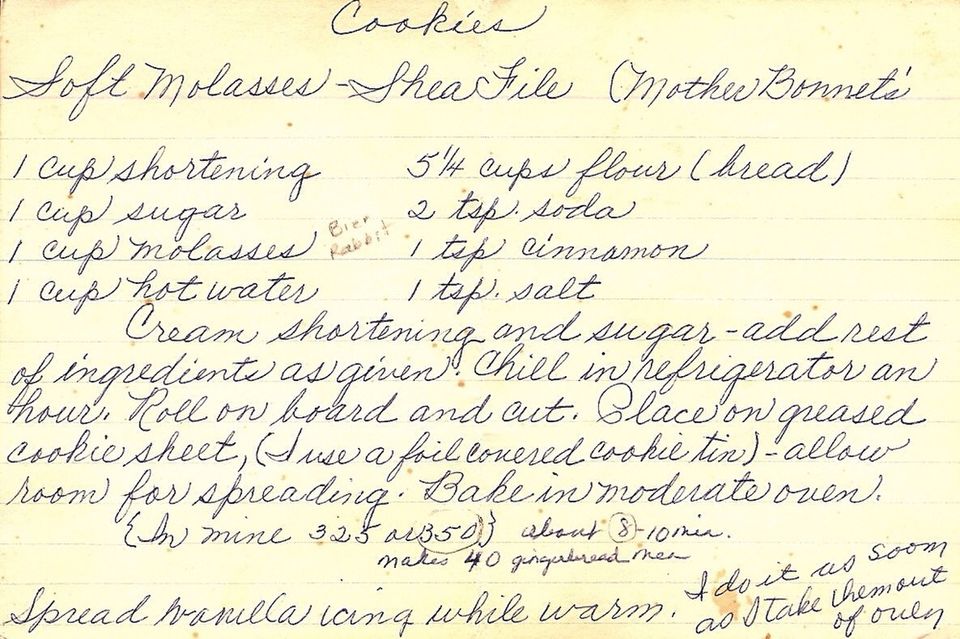 Cookies
Soft Molasses - Shea File (Mother Bonnet's
1 cup shortening 5 1/4 cups flour (bread)
1 cup sugar 2 tsp. soda
1 cup molasses Brer Rabbit 1 tsp cinnamon
1 cup hot water 1 tsp. salt
Cream shortening and sugar - add rest
of ingredients as given. Chill in refrigerator an
hour. Roll on board and cut. Place on greased
cookie sheet, (I use a foil covered cookie tin) - allow
room for spreading. Bake in moderate oven.
{In mine 325 or 350} about 8-10 min.
makes 40 gingerbread men
Spread vanilla icing while warm.
I do it as soom
as I take them out
of oven